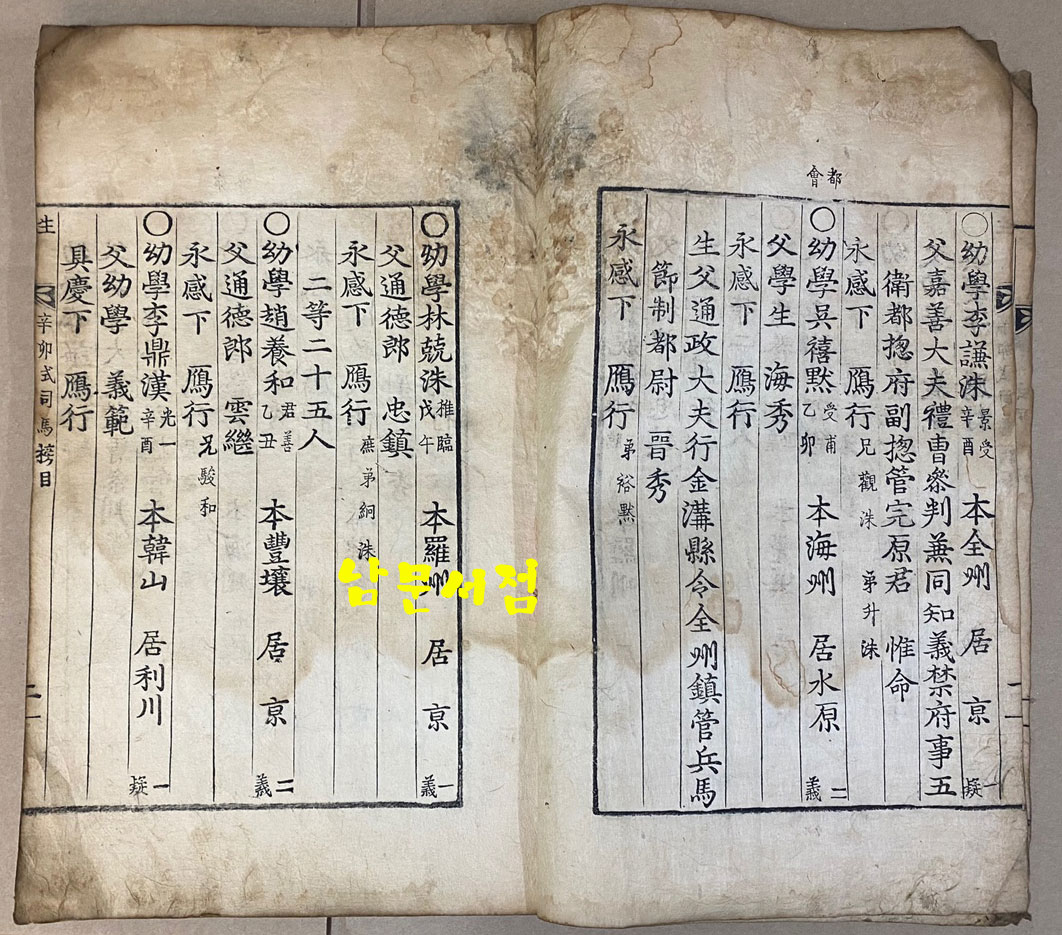 都會
○幼學李謙洙 景受 辛酉 本全州 居京 一疑
父嘉善大夫禮曹參判兼同知義禁府事五
衛都摠府副摠管完原君 惟命
永感下 鴈行 兄觀洙 弟升洙
○幼學吳禧默 受甫 乙卯 本海州 居水原 二義
父學生 海秀
永感下 鴈行
生父通政大夫行金溝縣令全州鎭管兵馬
節制都尉 晉秀
永感下 鴈行 弟裕默
○幼學林兢洙 稚臨 戊午 本羅州 居京 一義
父通德郎 忠鎭
永感下 鴈行 庶弟絅洙
二等二十五人
○幼學趙養和 君善 乙丑 本豐壤 居京 二義
父通德郎 雲繼
永感下 鴈行 兄駿和
○幼學李鼎漢 光一 辛酉 本韓山 居利川 一疑
父幼學 義範
具慶下 鴈行
生 辛卯式司馬榜目 二
남문서점